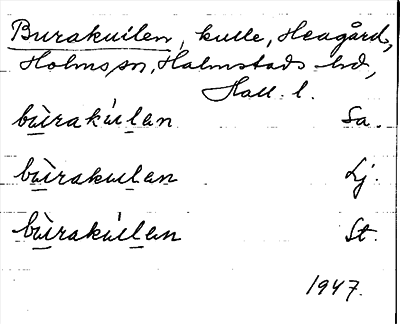 Burakuilen, kulle, Heagård,
Holms sn, Halmstads hd,
Hall. l.
bùrakúilan Sa.
bùrakuilan Lj.
bùrakúilan St.
1947.